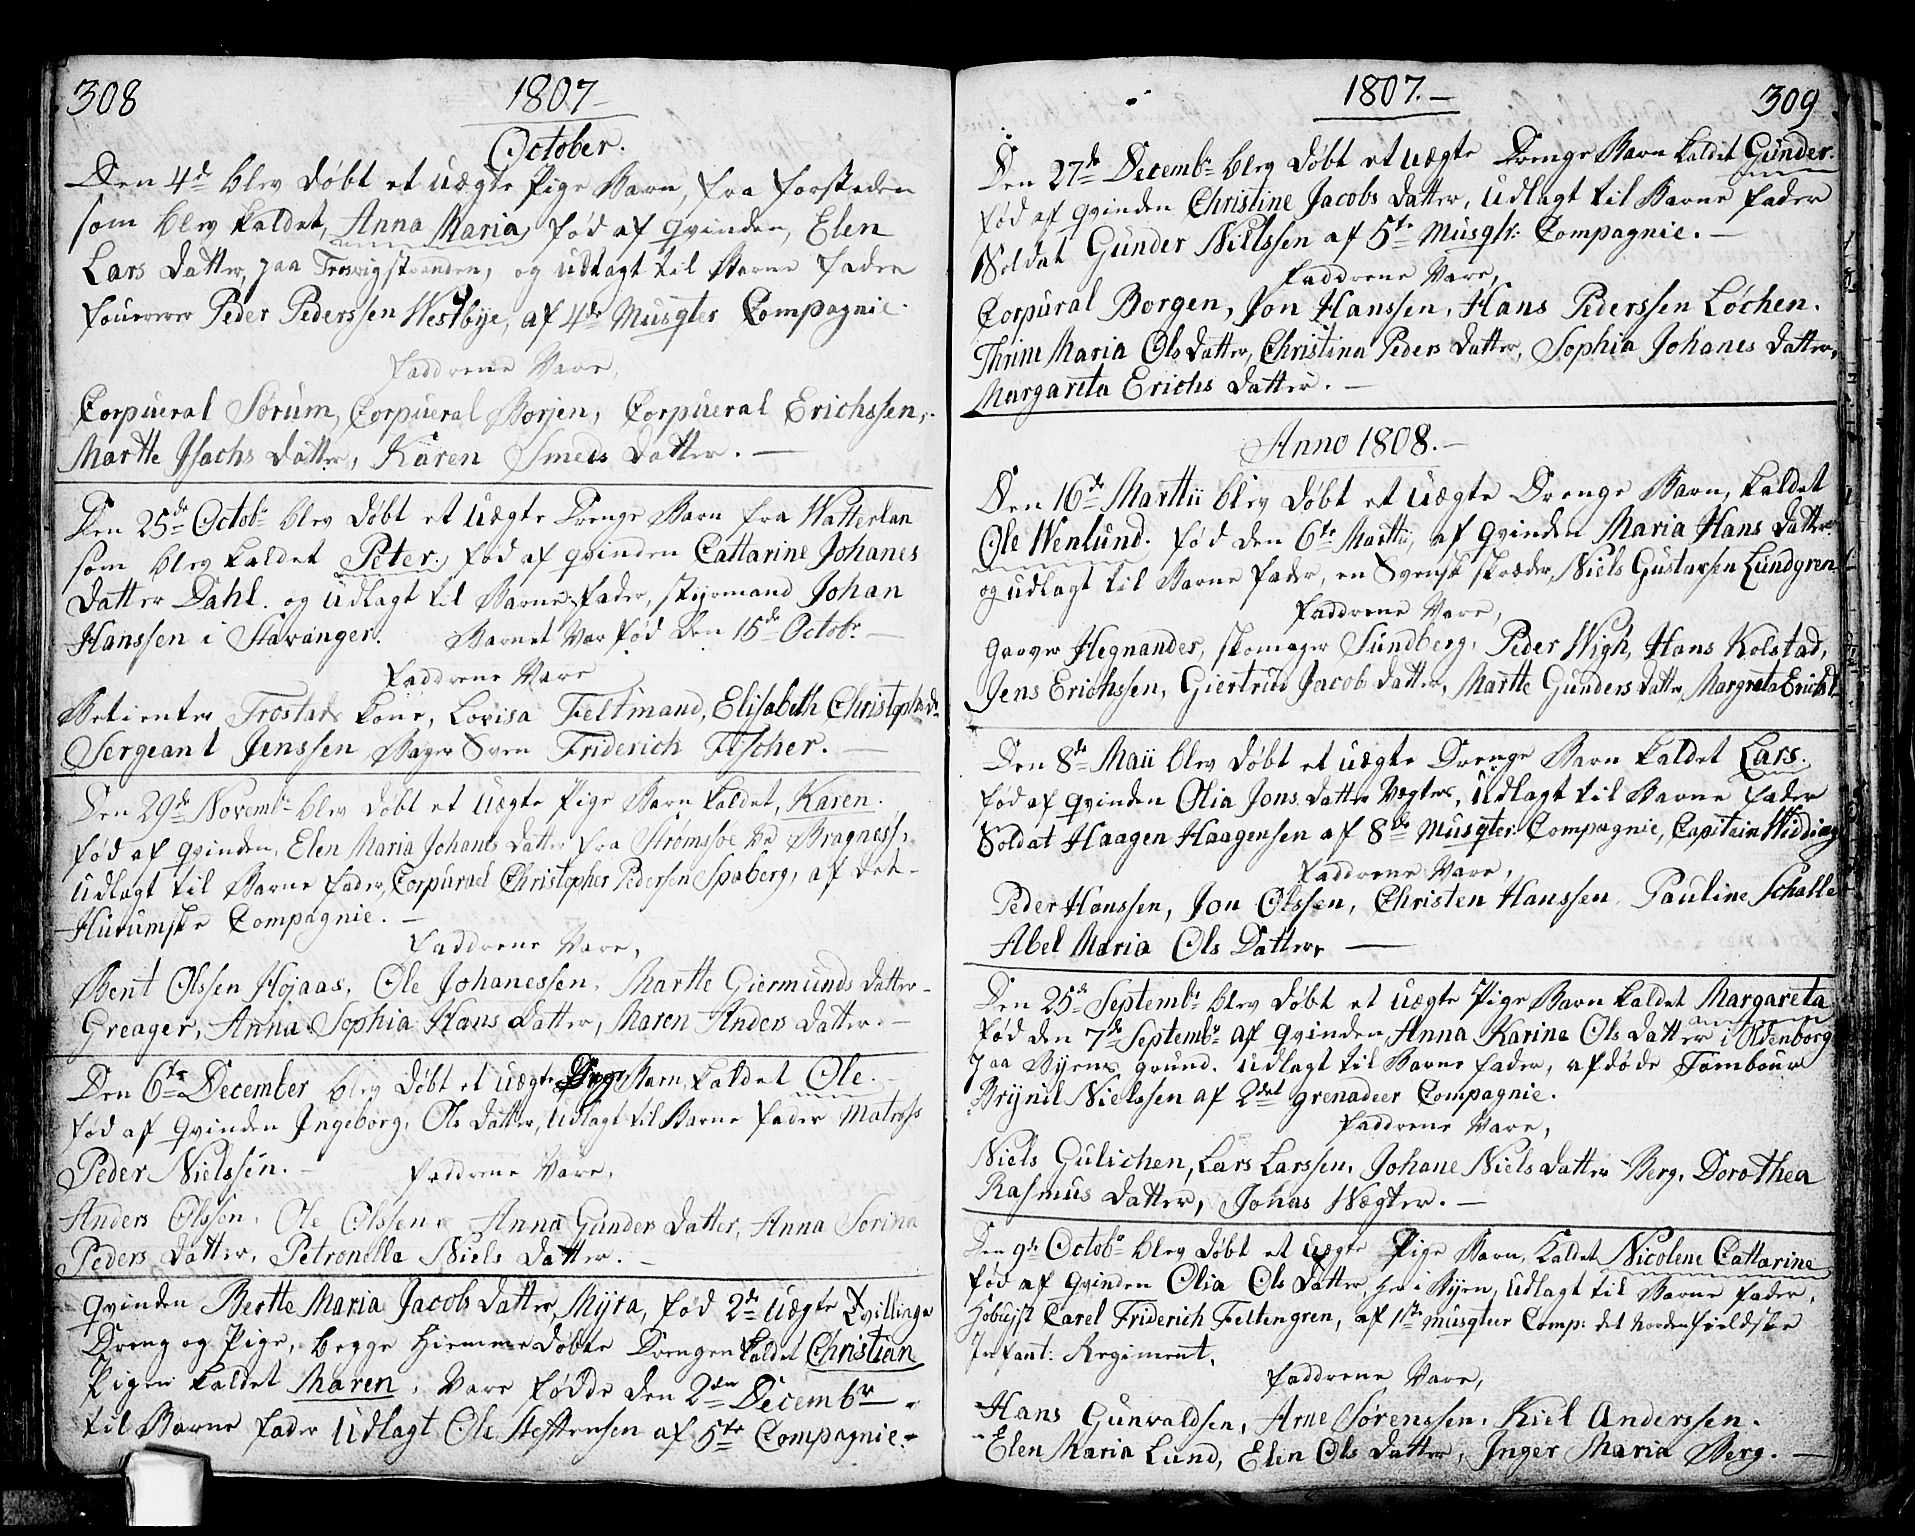 308
1807
October.
Den 4d blev Døbt et Uægte Pige Barn, fra Forstaden
som blev kaldet, Anna Maria, fød af Qvinden, Elen
Lars Datter, paa Trosvigstranden, og udlagt til Barne Fader
Fouererer Peder Pederssen Westbye, af 4de Musqter Compagnie.
Faddrene Vare,
Corpueral Sørum, Corpueral Borjen, Corpueral Erichssen,
Martte Isachs Datter, Karen Smeds Datter. —
Den 25de Octobr blev Døbt et Uægte Drenge Barn fra Watterlan
som blev kaldet Peter, fød af qvinden Cattarine Johanes
Datter Dahl. og Udlagt til Barne Fader, styrmand Johan
Hanssen i Stavanger. Barnet Var fød den 15de Octobr —
Faddrene Vare
Betienter Trostads Kone, Lovisa Feltmand, Elisabeth Christophs dr
Sergeant Jenssen, Bager Sven Friderich Fischer. —
Den 29de Novembr blev døbt et Uægte Pige Barn kaldet, Karen.
fød af qvinden, Elen Maria Johans Datter fra Strømssøe ved Bragness,
Udlagt til Barne Fader, Corpurael Christopher Pedersen Spaberg, af det
Hurumske Compagnie. —
Faddrene Vare,
Bent Olssen Højaas, Ole Johanessen, Martte Giermunds Datter
Greager, Anna Sophia Hans Datter, Maren Anders Datter. —
Den 6te December blev Døbt et Uægte Drenge Barn, kaldet Ole.
fød af Qvinden Ingeborg, Ols Datter, Udlagt til Barne Fader Matross
Peder Nielssen. — Faddrene Vare,
Anders Olssen, Ole Olssen, Anna Gunders Datter, Anna Sorina
Peders Datter, Petronella Niels Datter. —
Qvinden Bertte Maria Jacobs Datter, Myra, fød 2de Uægte Tvillinge
Dreng og Pige, begge Hiemmedøbte Drengen kaldet Christian
Pigen kaldet Maren, Vare fødde den 2den Decembr
til Barne Fader Udlagt Ole Steffensen af 5te Compagnie.
1807. —
309
Den 27de Decembr blev Døbt et uægte Drenge Barn kaldet Gunder.
fød af qvinden Christine Jacobs Datter, Udlagt til Barne Fader
Soldat Gunder Nielssen af 5te Musqtr: Compagnie. —
Faddrene Vare,
Corpural Borgen, Jon Hanssen, Hans Pederssen Løchen.
Thrine Maria Ols Datter, Christina Peders Datter, Sophia Johanes Datter,
Margareta Erichs Datter. —
Anno 1808. —
Den 16de Marttii blev Døbt et uægte Drenge Barn, kaldet
Ole Wenlund. fød den 6te Marttii, af Qvinden Maria Hans Datter
og udlagt til Barne Fader, en Svensk skræder, Niels Gustavsen Lundgren
Faddrene Vare,
Graver Hegnander, skomager Sundberg, Peder Wigh, Hans Kolstad,
Jens Erichssen, Giertrud Jacobs Datter, Martte Gunders Datter, Margreta Erichs D.
Den 8de Maii blev Døbt et uægte Drenge Barn kaldet Lars.
fød af qvinden Olia Jons Datter Vegters, Udlagt til Barne Fader
Soldat Haagen Haagensen af 8de Musqter: Compagnie, Capitain Widding
Faddrene Vare,
Peder Hanssen, Jon Olssen, Christen Hanssen, Pauline Schalle
Abel Maria Ols Datter, —
Den 25de Septembr blev Døbt et uægte Pige Barn kaldet Margareta
fød den 7de Septembr af qvinden, Anna Karine Ols Datter i Oldenborg
paa Byens grund. udlagt til Barne Fader, afdøde Tambour
Brynil Nielssen af 2det grenadeer Compagnie.
Faddrene Vare,
Niels Gulichen, Lars Larssen, Johane Niels Datter Berg, Dorothea
Rasmus Datter, Johas Wægter. —
Den 9de Octobr blev Døbt et uægte Pige Barn, kaldet Nicolene Cattarine
fød af Qvinden Olia Ols Datter, her i Byen, Udlagt til Barne Fader,
Hoboist Carel Friderich Feltengren, af 1ste Musqteer Comp: det Nordenfieldske
Infant: Regiment,
Faddrene Vare,
Hans Gunvaldsen, Arne Sørenssen, Kiel Anderssen.
Elen Maria Lund, Elen Ols Datter, Inger Maria Berg. —